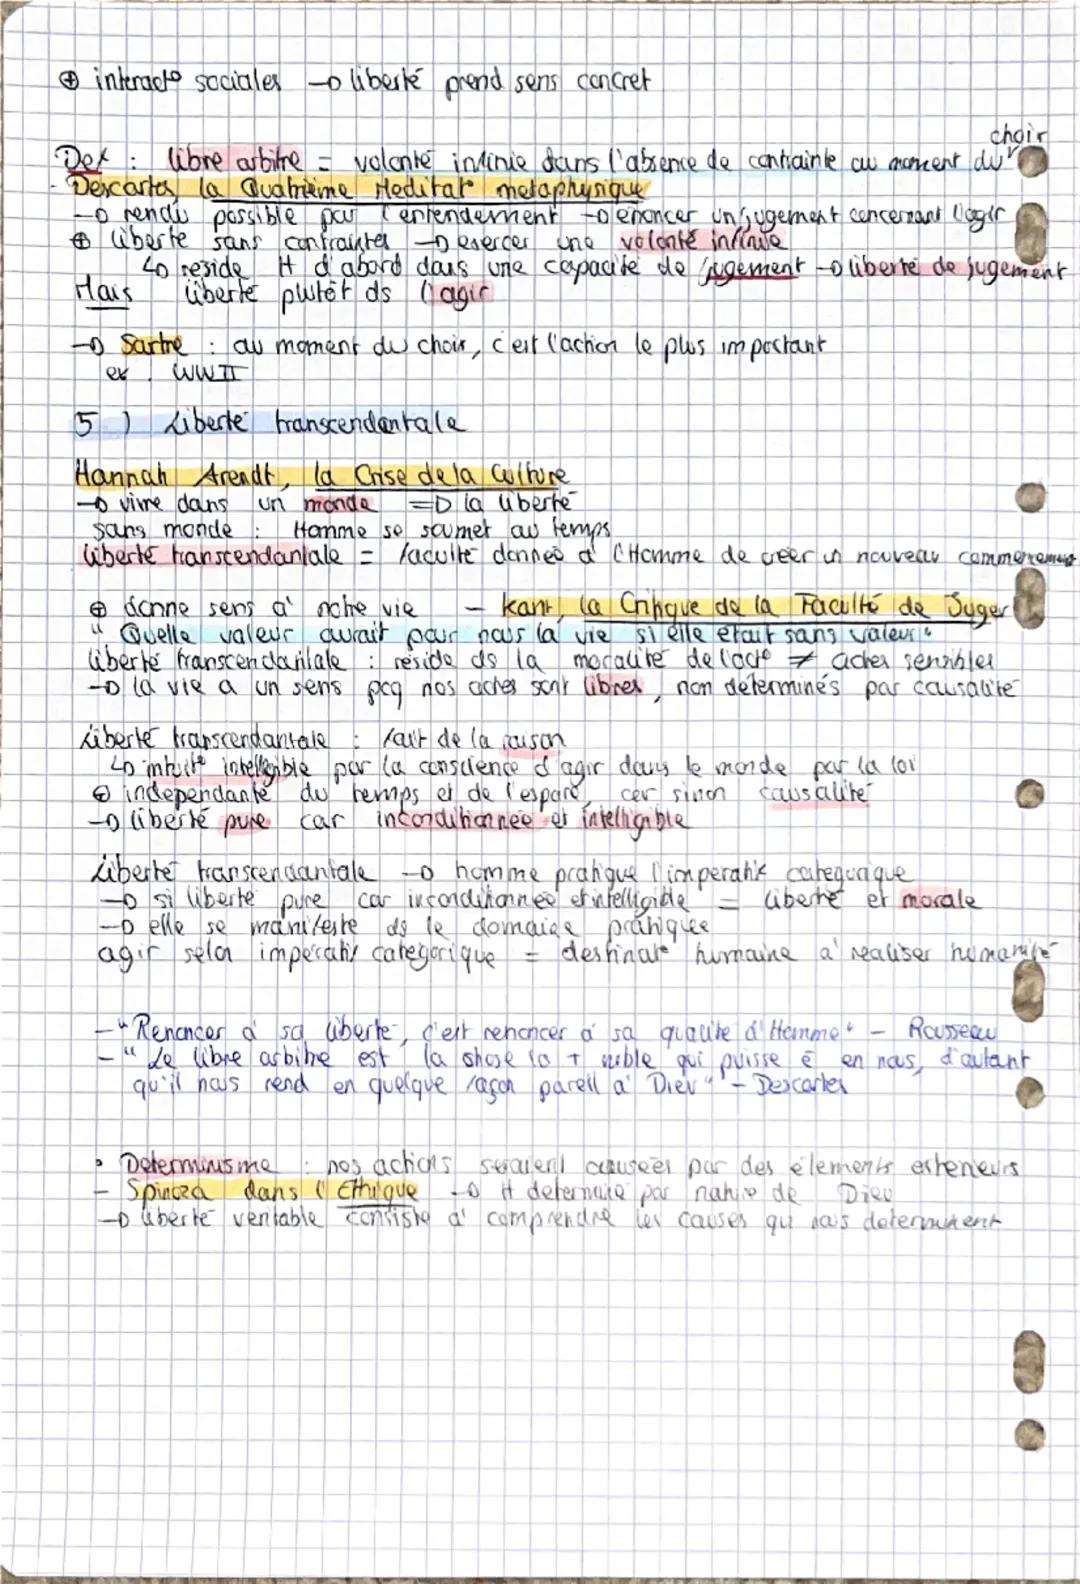 ⊕ interact° sociales → liberté prend sens concret
choix
Def : libre arbitre = volonté infinie dans l'absence de contrainte au moment du
- Descartes, la Quatrième Meditat° metaphysique
→ rendu possible par l'entendement → énoncer un jugement concernant l'agir
⊕ liberté sans contraintes → exercer une volonté infinie
↳ reside H d'abord dans une capacité de jugement → liberté de jugement
Mais liberté plutôt ds l'agir
→ Sartre : au moment du choix, c'est l'action le plus important
ex : WWII
5 ) Liberté transcendantale
Hannah Arendt, la Crise de la Culture
→ vivre dans un monde => la liberté
sans monde : Homme se soumet au temps
liberté transcendantale = faculté donnée à l'Homme de créer un nouveau commencement
⊕ donne sens à notre vie - Kant, la Critique de la Faculté de Juger
" Quelle valeur aurait pour nous la vie si elle était sans valeur "
liberté transcendantale : réside ds la moralité de l'act° ≠ actes sensibles
→ la vie a un sens pcq nos actes sont libres, non déterminés par causalité
Liberté transcendantale : fait de la raison
↳ intuit° intelligible par la conscience d'agir dans le monde par la loi
⊕ indépendante du temps et de l'espace, car sinon causalité
→ liberté pure car inconditionnée et intelligible
Liberté transcendantale → homme pratique l'impératif catégorique
→ si liberté pure car inconditionnée et intelligible = liberté et morale
→ elle se manifeste ds le domaine pratique
agir selon impératif catégorique = destinat° humaine à réaliser humanité
- "Renoncer à sa liberté, c'est renoncer à sa qualité d'Homme" - Rousseau
- " Le libre arbitre est la chose la + noble qui puisse ê en nous, d'autant
qu'il nous rend en quelque façon pareil à Dieu " - Descartes
• Déterminisme : nos actions seraient causées par des éléments exterieurs
- Spinoza dans l'Ethique → H déterminé par nature de Dieu
→ liberté véritable consiste à comprendre les causes qui nous déterminent